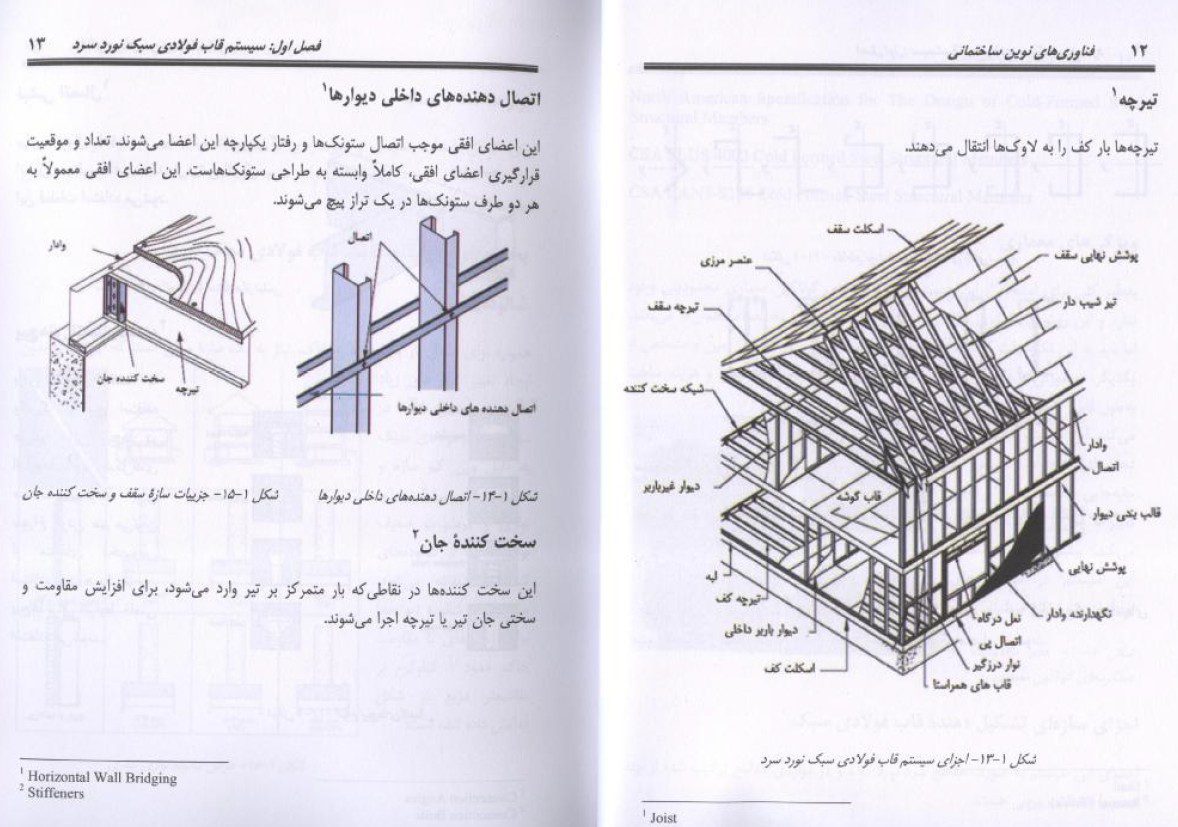 ۱۲ فناوری‌های نوین ساختمانی
تیرچه¹
تیرچه‌ها بار کف را به لاوک‌ها انتقال می‌دهند.
اسکلت سقف
پوشش نهایی سقف
عنصر مرزی
تیر شیب دار
تیرچه سقف
شبکه سخت کننده
وادار
اتصال
دیوار غیرباربر
قاب گوشه
قالب بندی دیوار
پوشش نهایی
لبه
تیرچه کف
نگهدارنده وادار
نعل درگاه
دیوار باربر داخلی
اتصال پی
نوار درزگیر
اسکلت کف
قاب های همراستا
شکل ۱-۱۳- اجزای سیستم قاب فولادی سبک نورد سرد
¹ Joist
فصل اول: سیستم قاب فولادی سبک نورد سرد ۱۳
اتصال دهنده‌های داخلی دیوارها¹
این اعضای افقی موجب اتصال ستونک‌ها و رفتار یکپارچه این اعضا می‌شوند. تعداد و موقعیت
قرارگیری اعضای افقی، کاملاً وابسته به طراحی ستونک‌هاست. این اعضای افقی معمولاً به
هر دو طرف ستونک‌ها در یک تراز پیچ می‌شوند.
اتصال
وادار
سخت کننده جان
تیرچه
اتصال دهنده های داخلی دیوارها
شکل ۱-۱۴- اتصال دهنده‌های داخلی دیوارها
شکل ۱-۱۵- جزییات سازهٔ سقف و سخت کننده جان
سخت کنندهٔ جان²
این سخت کننده‌ها در نقاطی‌که بار متمرکز بر تیر وارد می‌شود، برای افزایش مقاومت و
سختی جان تیر یا تیرچه اجرا می‌شوند.
¹ Horizontal Wall Bridging
² Stiffeners